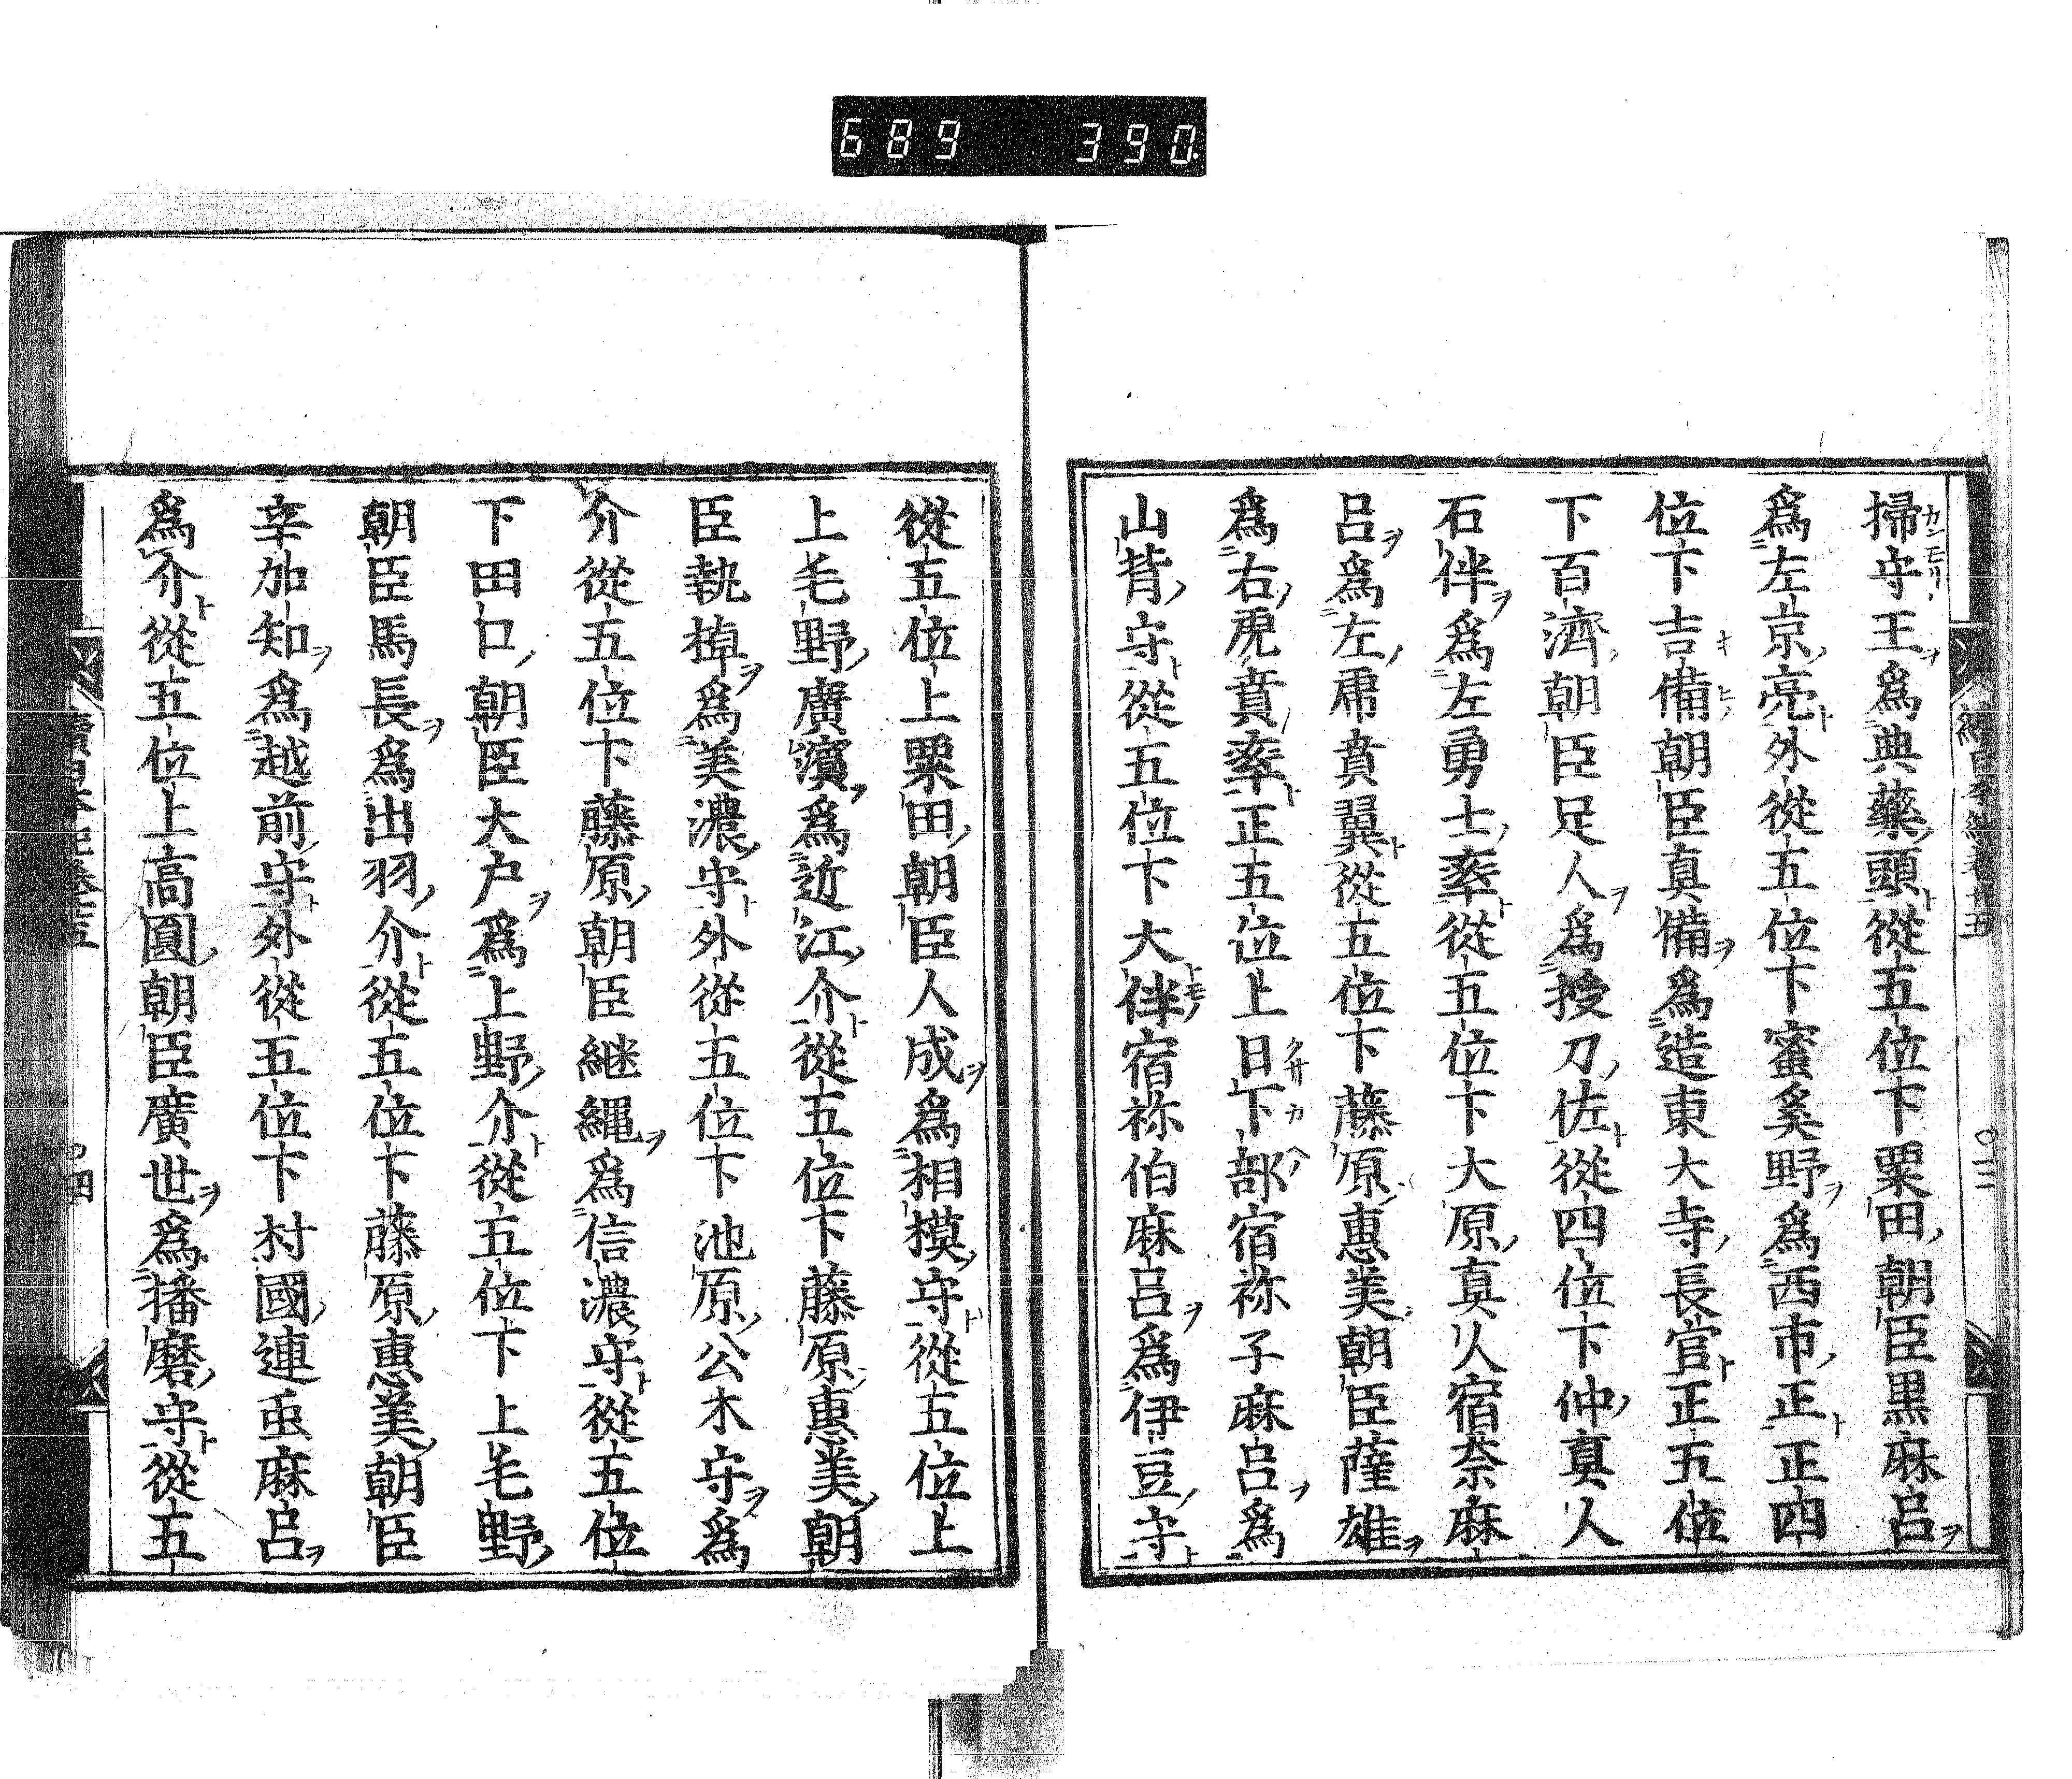 689 390
掃守王爲典藥頭從五位下粟田朝臣黒麻呂
爲左京亮外從五位下蜜奚野爲西市正正四
位下吉備朝臣真備爲造東大寺長官正五位
下百濟朝臣足人爲授刀佐從四位下仲真人
石伴爲左勇士率從五位下大原真人宿奈麻
呂爲左虎賁翼從五位下藤原惠美朝臣薩雄
爲右虎賁率正五位上日下部宿祢子麻呂爲
山背守從五位下大伴宿祢伯麻呂爲伊豆守
從五位上粟田朝臣人成爲相模守從五位上
上毛野廣濱爲近江介從五位下藤原惠美朝
臣執棹爲美濃守外從五位下池原公木守爲
介從五位下藤原朝臣継縄爲信濃守從五位
下田口朝臣大户爲上野介從五位下上毛野
朝臣馬長爲出羽介從五位下藤原惠美朝臣
辛加知爲越前守外從五位下村國連虫麻呂
爲介從五位上高圓朝臣廣世爲播磨守從五
續日本紀卷廿五
四